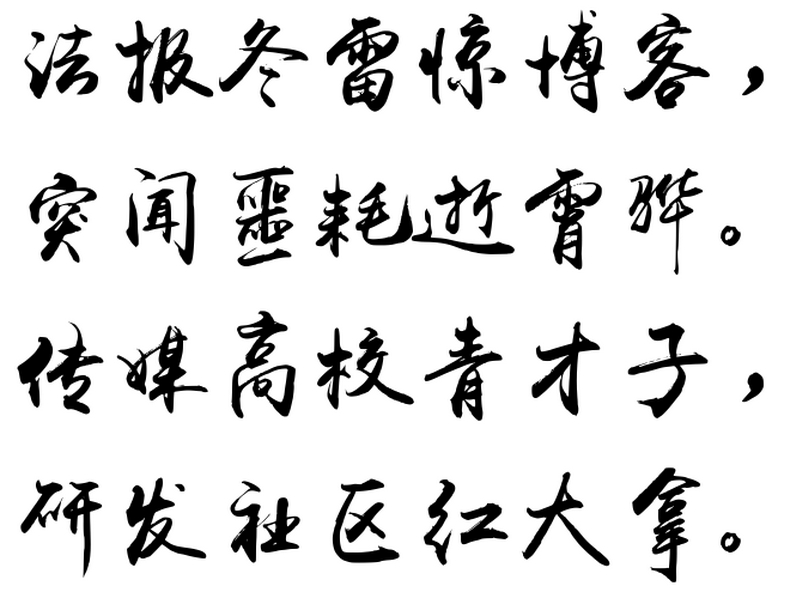 法报冬雷惊博客，
突闻噩耗逝霄骅。
传媒高校青才子，
研发社区红大拿。